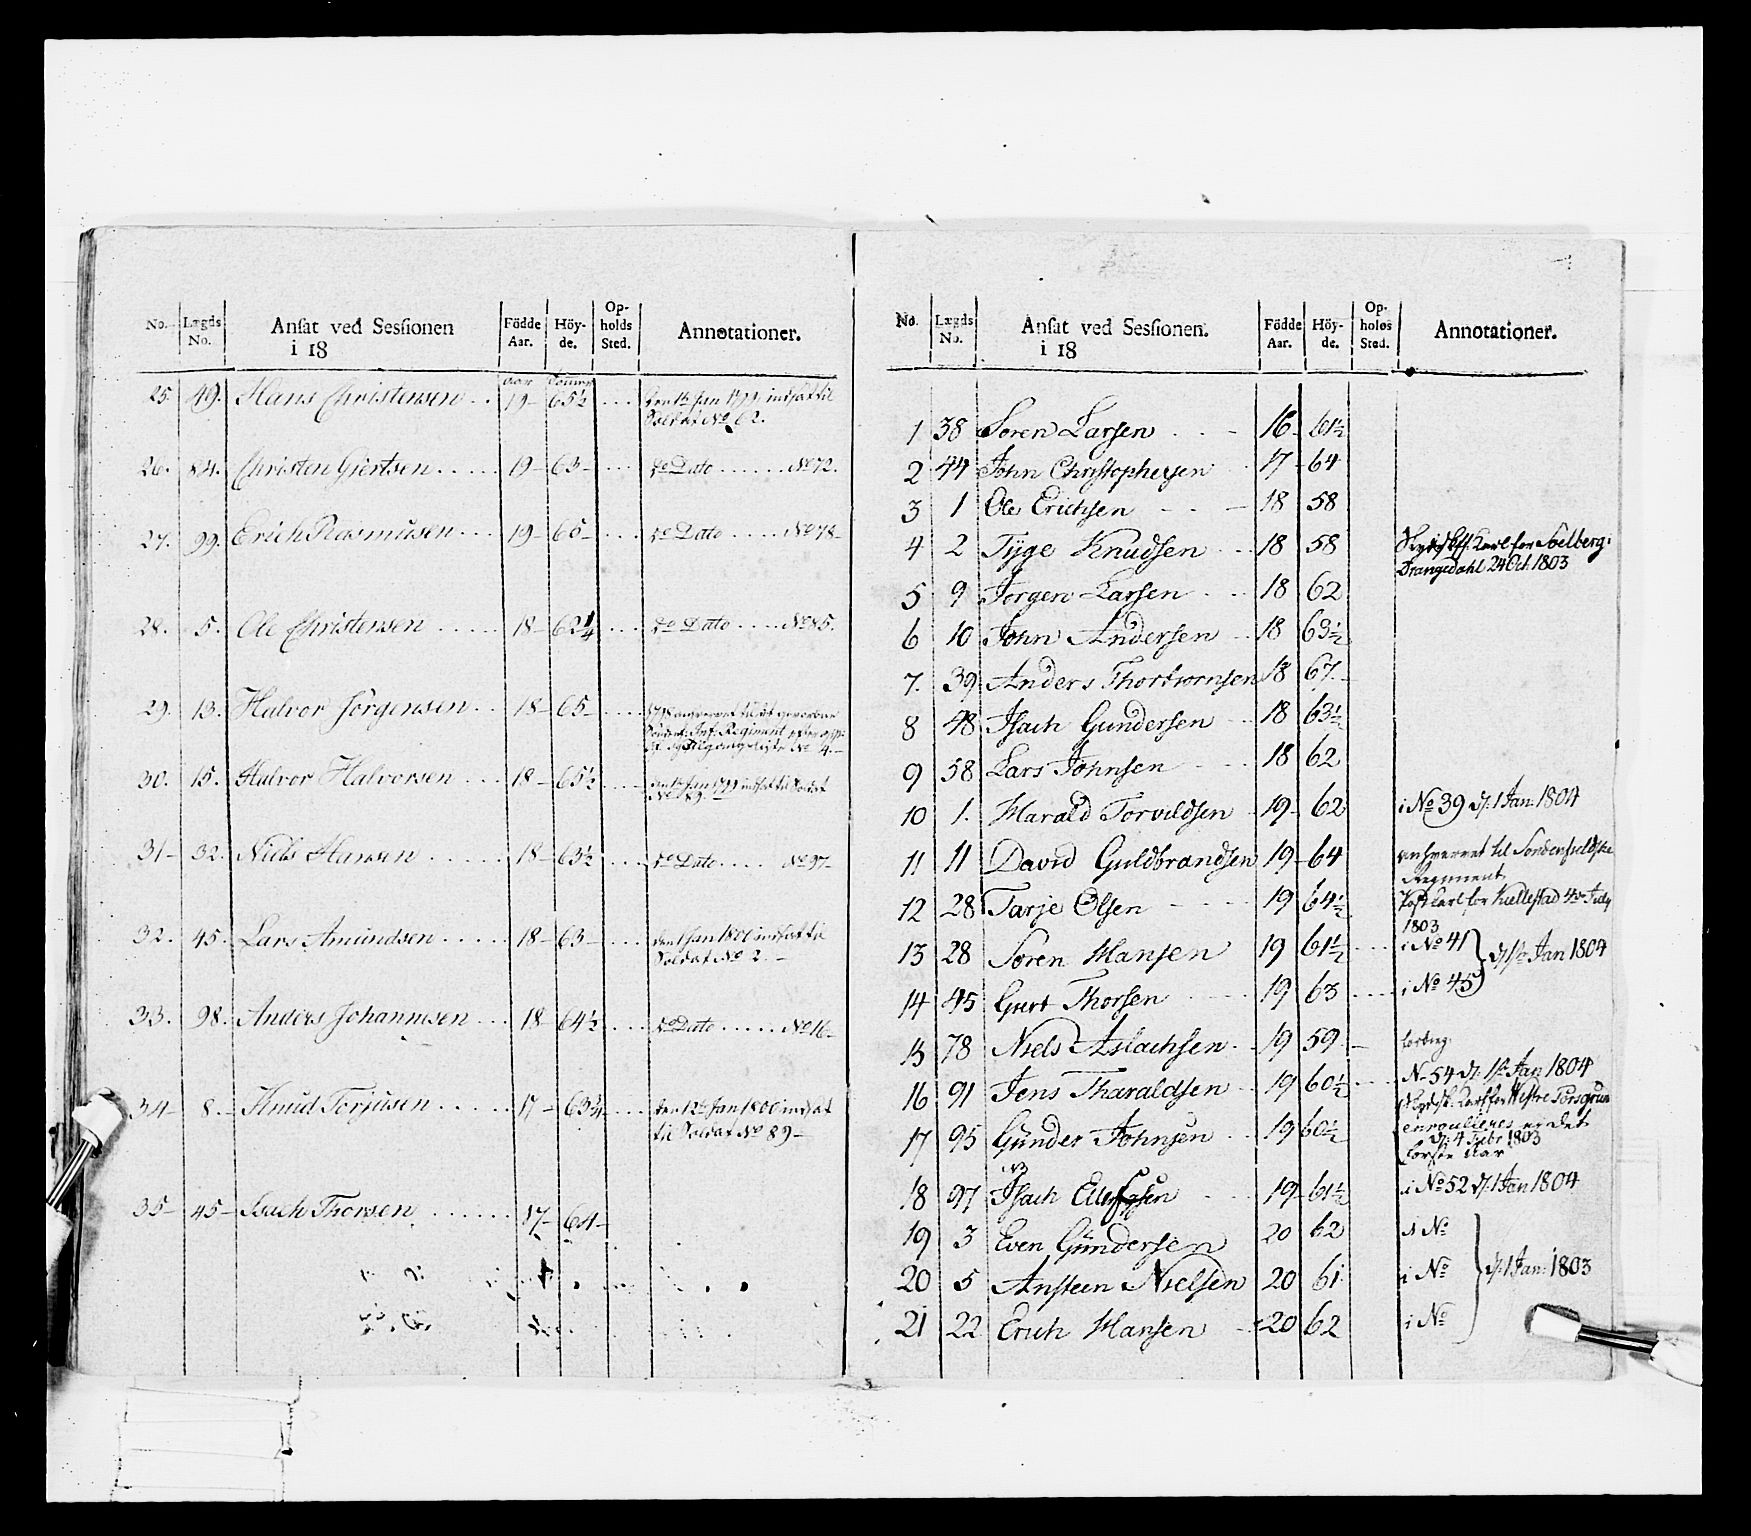 No. Lægds No. Ansat ved Sessionen i 18 Födde Aar. Höy-de. Op-holds Sted. Annotationer.
25. 49. Hans Christensen . . 19 – 65½ . . . den 1te Jan 1799 indsat til
Soldat No 62.
26. 84. Christen Giertsen . . . . . 19 – 63 – . . . do Dato . . . . . . No 72.
27. 99. Erich Rasmusen . . . 19 – 65 – . . . do Dato . . . . . No 78 –
28. 5. Ole Christensen . . . . . 18 – 62¼ . . . do Dato . . . . . No 85.
29. 13. Halvor Jörgensen . . 18 – 65 – . . . .
Regiment
No 4. –
30. 15. Halvor Halvorsen . . . 18 – 65½ . . . . den 1te Jan 1799 indsat til Soldat
No 89. –
31 – 32. Niels Hansen . . . . . 18 – 63½ . . . do Dato . . . . No 97 –
32. 45. Lars Amundsen . . . . . 18 – 63 – . . . den 1 Jan 1800 indsat til
Soldat No 2. –
33. 98. Anders Johannesen . . . 18 – 64½ . . . do Dato . . . . . No 16 –
34 – 8. – Knud Torjusen . . . . . 17 – 63¾ . . . den 12te Jan 1800 indsat
til Soldat No 89 –
35 – 45 – Isach Thorsen . . . . . . 17 – 64 –
No. Lægds No. Ansat ved Sessionen. i 18 Födde Aar. Höy-de. Op-holds Sted. Annotationer.
1 38 Soren Larsen . . – 16 – 61½
2 44 John Christophersen 17 – 64
3 1 Ole Erichsen – . – 18 58
4 2 Tÿge Knudsen . . . 18 58 Karl for Solberg i
Drangedahl 24 Oct. 1803
5 9 Jorgen Larsen . . . 18 62
6 10 John Andersen . . 18 63½
7. 39 Anders Thorbiornsen 18 67.
8 48 Isach Gundersen . . 18 63½
9 58 Lars Johnsen . . . 18 62
10 1. Harald Torvildsen . 19 – 62 i No 39 d: 1 Jan: 1804
11 11 David Guldbrandsen 19 – 64 anhvervet til Sondenfieldske
Regiment
12 28 Tarje Olsen – . . . . 19 64½ Postkarl for Kiellestad 4de July
1803
13 28 Soren Hansen 19 61½ . . . . i No 41 } d 1te Jan 1804
14 45 Giert Thorsen . . . . 19 63 . . . . i No 45
15 78 Niels Aslachsen . – 19 59 –
16 91 Jens Tharaldsen . . 19 60½ . . . . No 54 d: 1te Jan 1804
17 95 Gunder Johnsen . . 19 60½ Karl for Westre Porsgrund
enroulleres er det
d: 4 Febr 1803
første Aar
18 97 Isach Ellefsen . . 19 – 61½ . i No 52 d: 1 Jan 1804
19 3 Even Gundersen 20 62 i No
20 5 Ansteen Nielsen 20 61 i No } d: 1 Jan: 1803
21 22 Erich Hansen – 20 62 i No